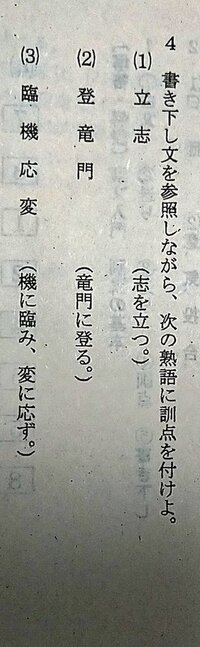 4 書き下し文を参照しながら、次の熟語に訓点を付けよ。
(1) 立志 (志を立つ。)
(2) 登竜門 (竜門に登る。)
(3) 臨機応変 (機に臨み、変に応ず。)